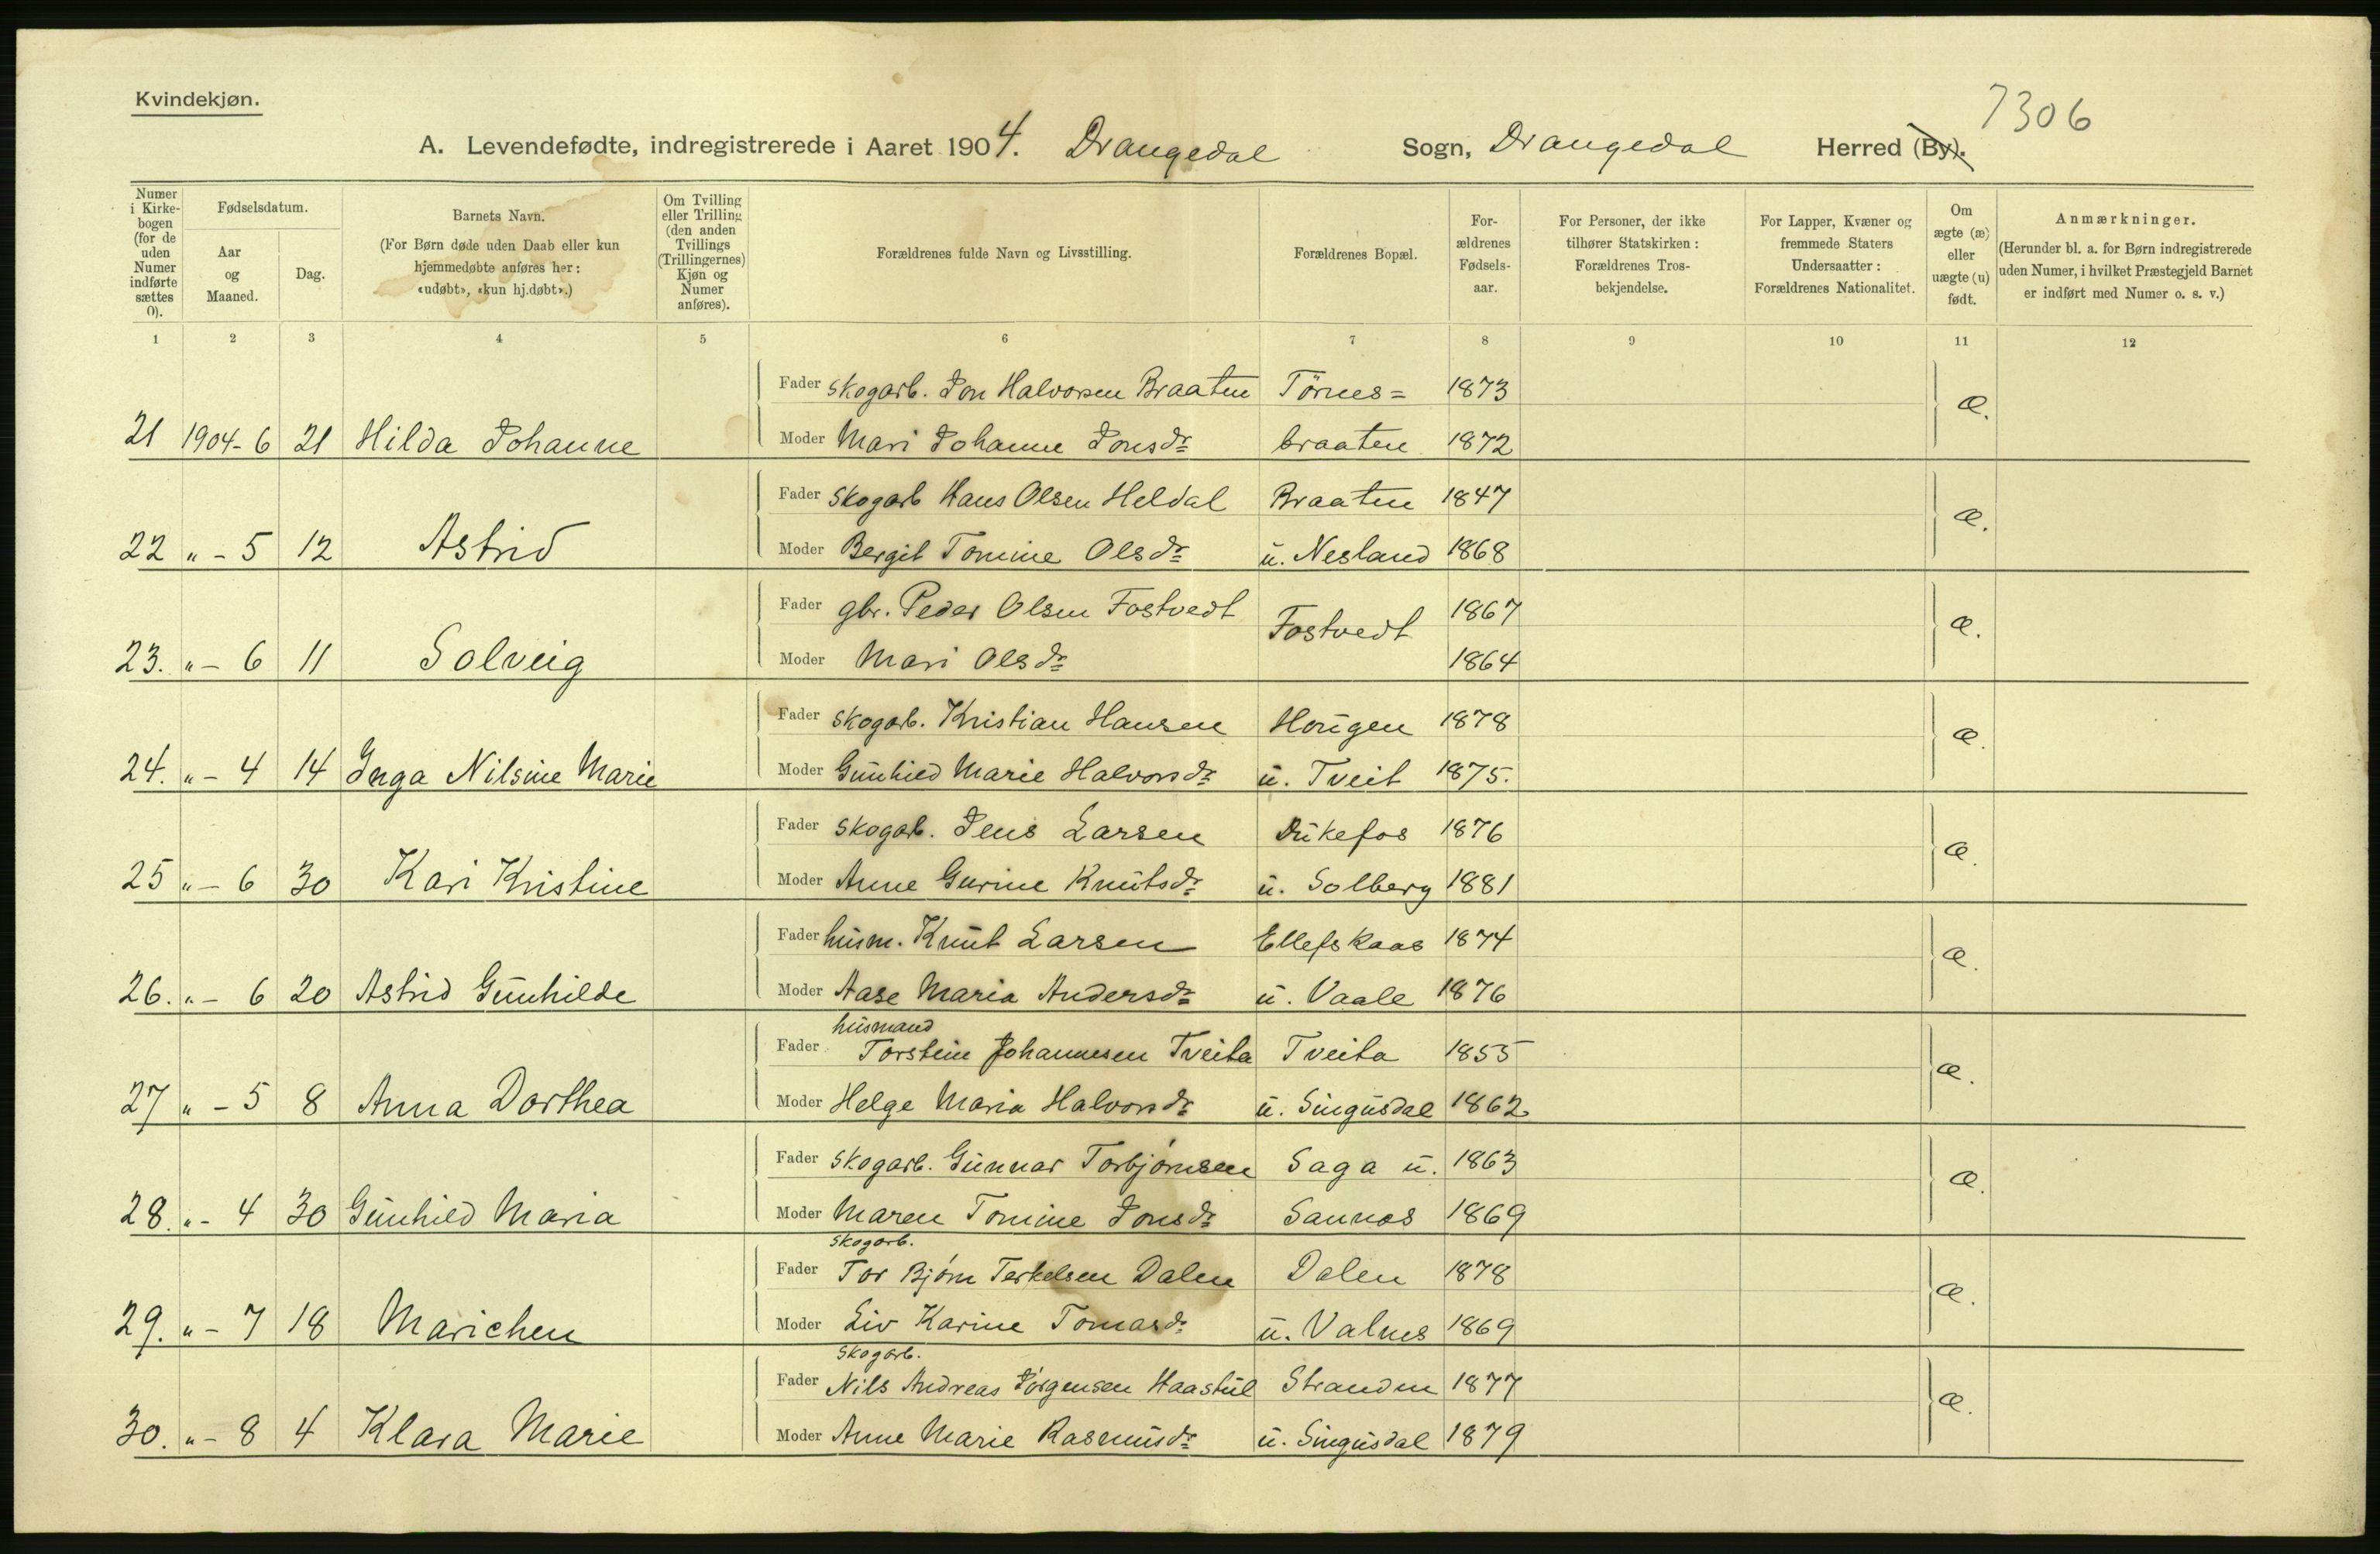 Kvindekjøn.
7306
A. Levendefødte, indregistrerede i Aaret 1904. Drangedal Sogn, Drangedal Herred (By).
Numer i Kirkebogen (for de uden Numer indførte sættes 0).
Fødselsdatum.
Aar og Maaned.
Dag.
Barnets Navn.
(For Børn døde uden Daab eller kun hjemmedøbte anføres her: «udøbt», «kun hj.døbt».)
Om Tvilling eller Trilling (den anden Tvillings (Trillingernes) Kjøn og Numer anføres).
Forældrenes fulde Navn og Livsstilling.
Forældrenes Bopæl.
Forældrenes Fødselsaar.
For Personer, der ikke tilhører Statskirken: Forældrenes Trosbekjendelse.
For Lapper, Kvæner og fremmede Staters Undersaatter: Forældrenes Nationalitet.
Om ægte (æ) eller uægte (u) født.
Anmærkninger.
(Herunder bl. a. for Børn indregistrerede uden Numer, i hvilket Præstegjeld Barnet er indført med Numer o. s. v.)
1 2 3 4 5 6 7 8 9 10 11 12
Fader skogarb. Jon Halvorsen Braaten Törnes= 1873 æ.
21 1904-6 21 Hilda Johanne Moder Mari Johanne Jonsdr braaten 1872
Fader skogarb Hans Olsen Heldal Braaten 1847 æ.
22 „ - 5 12 Astrid Moder Bergit Tomine Olsdr u. Nesland 1868
Fader gbr. Peder Olsen Fostvedt Fostvedt 1867 æ.
23. „ - 6 11 Solveig Moder Mari Olsdr 1864
Fader skogarb. Kristian Hansen Hougen 1878 æ.
24. „ - 4 14 Inga Nilsine Marie Moder Gunhild Marie Halvorsdr u. Tveit 1875.
Fader skogarb. Jens Larsen Dukefos 1876 æ.
25 „ - 6 30 Kari Kristine Moder Anne Gurine Knutsdr u. Solberg 1881
Fader husm. Knut Larsen Ellefskaas 1874 æ.
26. „ - 6 20 Astrid Gunhilde Moder Aase Maria Andersdr u. Vaale 1876
husmand
Fader Torstein Johannesen Tveita Tveita 1855 æ.
27 „ - 5 8 Anna Dorthea Moder Helge Maria Halvorsdr u. Singusdal 1862
Fader skogarb. Gunnar Torbjørnsen Saga u. 1863 æ.
28. „ - 4 30 Gunhild Maria Moder Maren Tomine Jonsdr Sannes 1869
skogarb.
Fader Tor Bjørn Terkelsen Dalen Dalen 1878 æ.
29. „ - 7 18 Marichen Moder Liv Karine Tomasdr u. Valnes 1869
skogarb.
Fader Nils Andreas Jørgensen Haastul Stranden 1877 æ.
30. „ - 8 4 Klara Marie Moder Anne Marie Rasmusdr u. Singusdal 1879